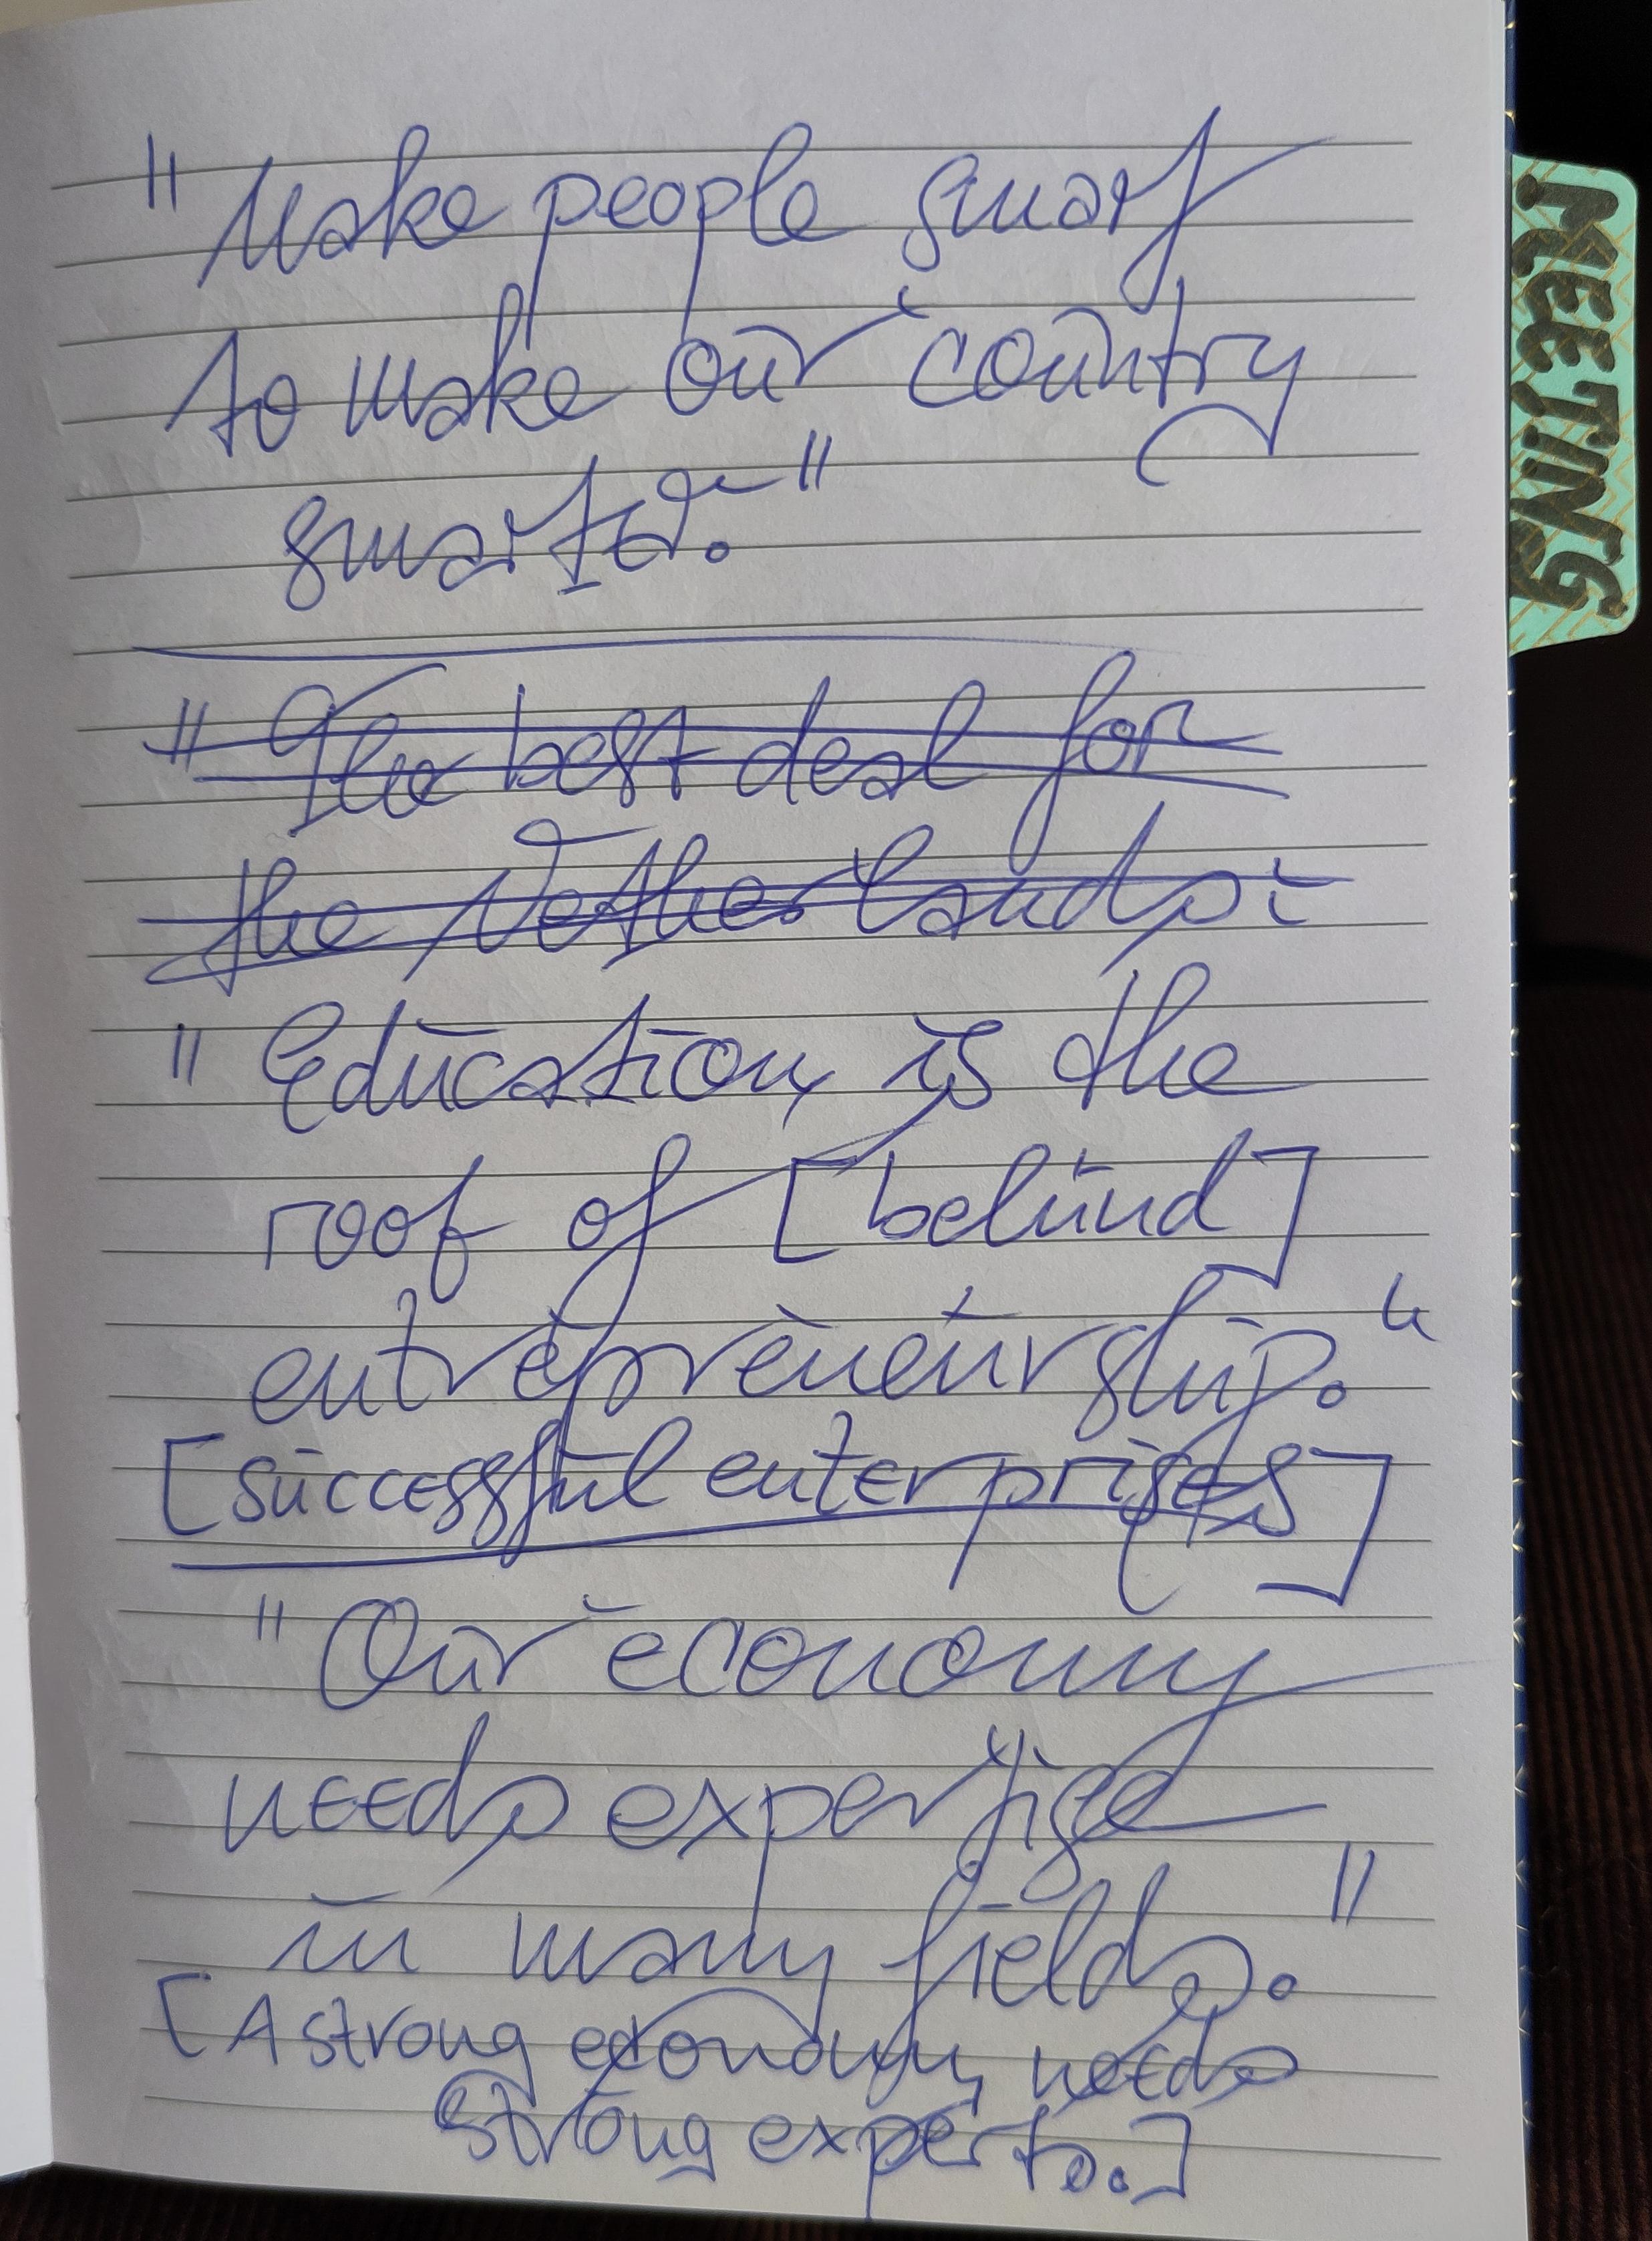 "Make people smart
to make our country
smarter."
"The best deal for
the Netherlands:
"Education is the
roof of [behind]
entrepreneurship."
[successful enterprises]
"Our economy
needs expertise
in many fields."
[A strong economy needs
strong experts.]
MEETING